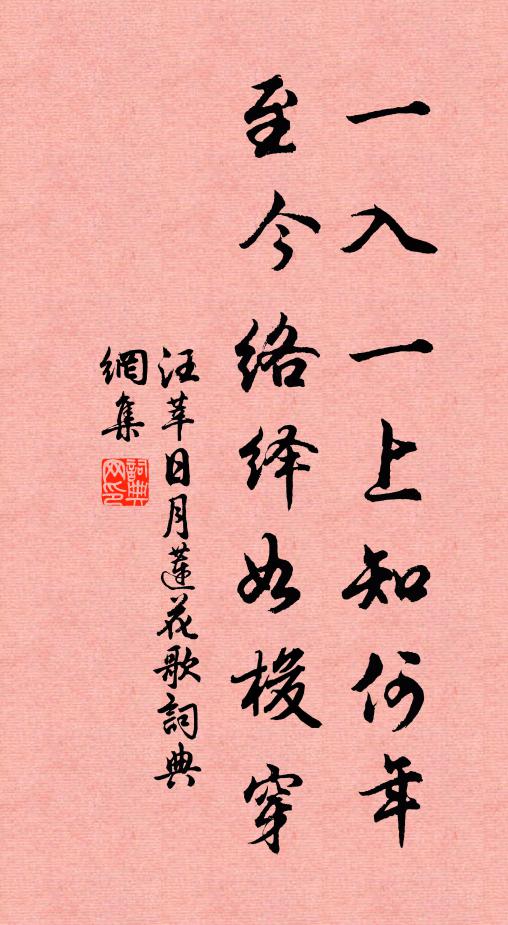 一入一上知何年
至今络绎如梭穿
汪莘日月蓮花歌詞典
網集
詞典
网印